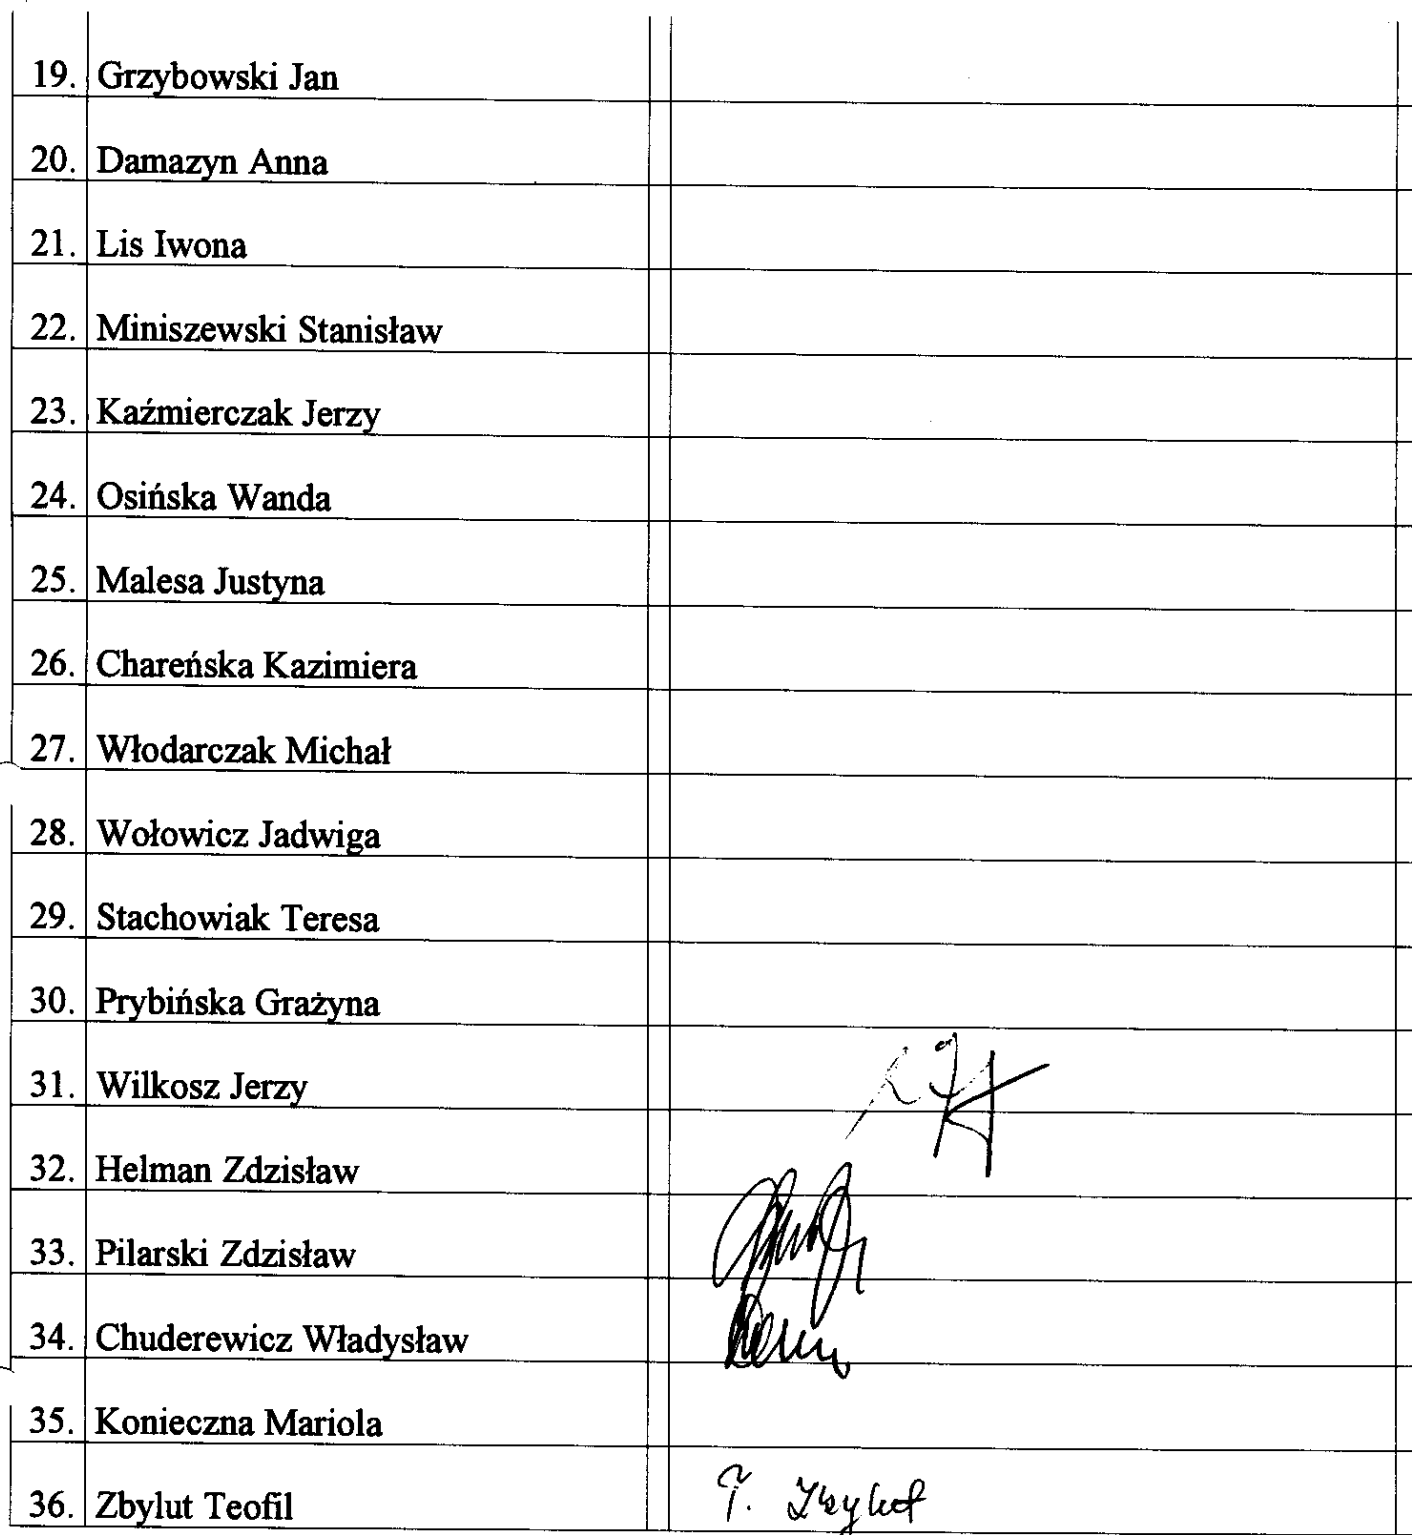 19. Grzybowski Jan
20. Damazyn Anna
21. Lis Iwona
22. Miniszewski Stanisław
23. Kaźmierczak Jerzy
24. Osińska Wanda
25. Malesa Justyna
26. Chareńska Kazimiera
27. Włodarczak Michał
28. Wołowicz Jadwiga
29. Stachowiak Teresa
30. Prybińska Grażyna
31. Wilkosz Jerzy
32. Helman Zdzisław
33. Pilarski Zdzisław
34. Chuderewicz Władysław
35. Konieczna Mariola
36. Zbylut Teofil T. Zbylut